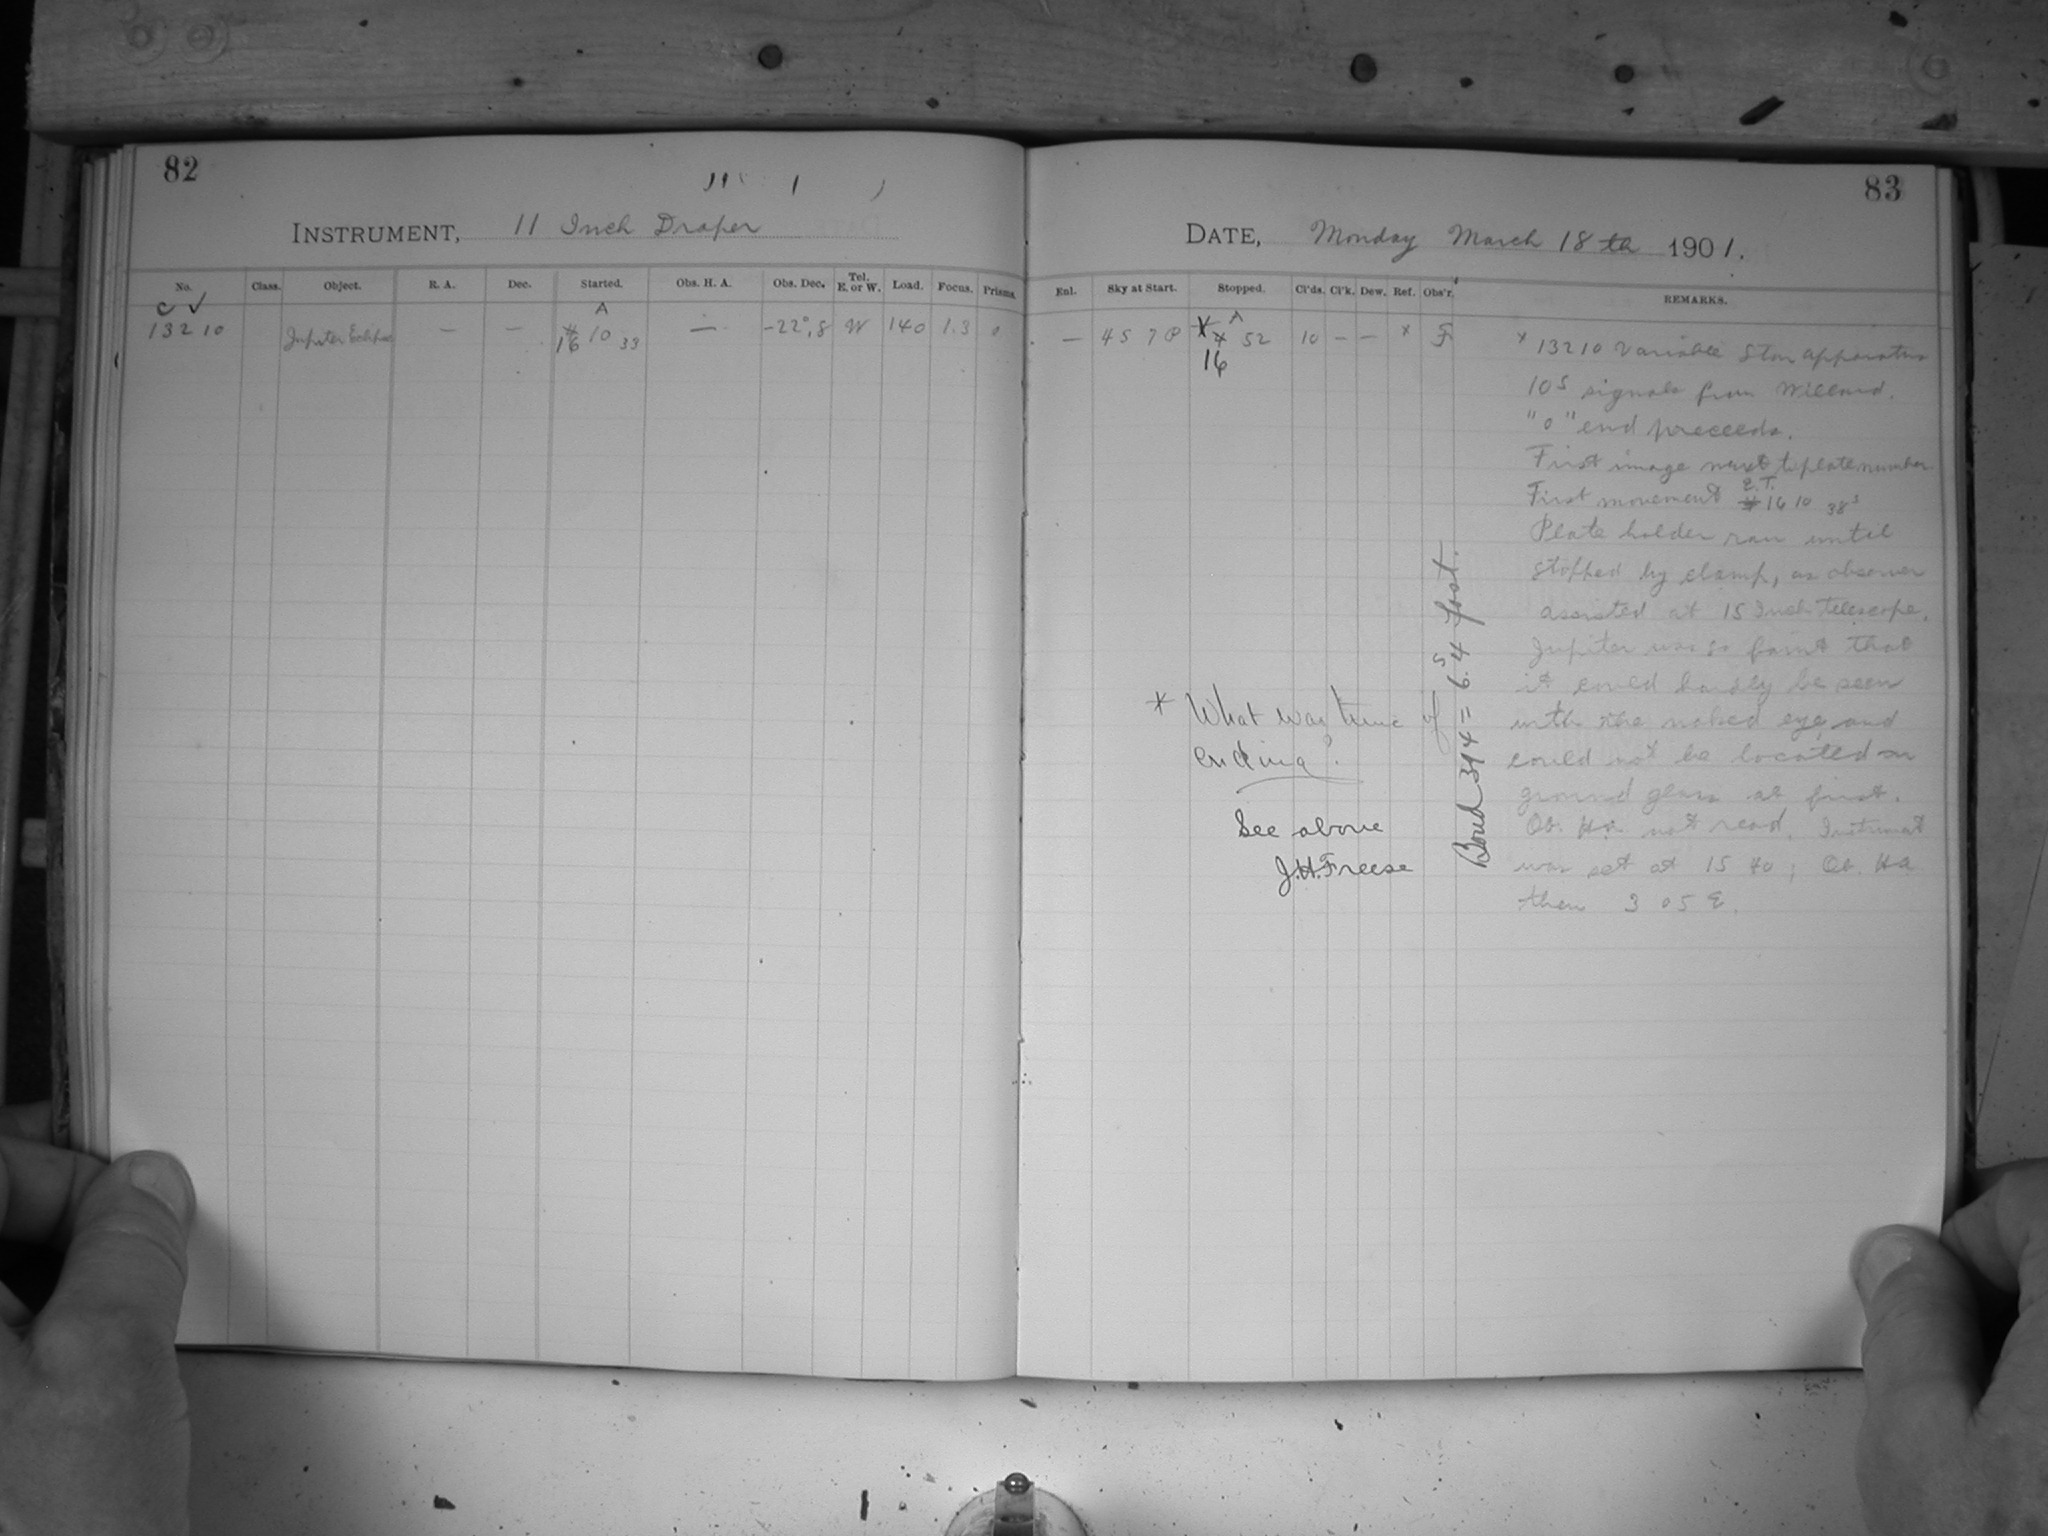 82
INSTRUMENT, 11 Inch Draper
No. Class. Object. R. A. Dec. Started. Obs. H. A. Obs. Dec. Tel. E. or W. Load. Focus. Prisms.
C ✓ A
13210 Jupiter Eclipse — — 16 10 33 — -22°.8 W 140 1.3 0
83
DATE, Monday March 18th 1901.
Enl. Sky at Start. Stopped. Cl'ds. Cl'k. Dew. Ref. Obs'r. REMARKS.
A
— 4 5 7 P * 52 10 — — x F
16
x 13210 Variable Star apparatus
10s signals from Willard.
"0" end preceeds.
First image next to plate number.
E.T.
First movement 16 10 38s
Plate holder ran until
stopped by clamp, as observer
assisted at 15 Inch telescope.
Jupiter was so faint that
it could hardly be seen
with the naked eye, and
could not be located on
ground glass at first.
Ob. Ha not read. Instrument
was set at 15 40; Ob. Ha
then 3 05 E.
* What was time of
ending?
See above
J.H. Freese
Bond 394 = 6.s4 fast.